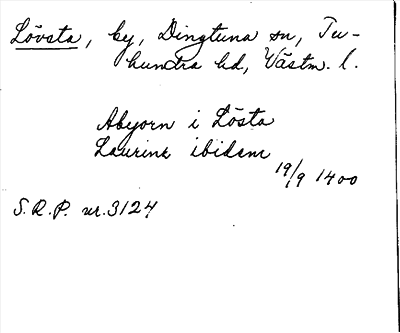 Lövsta, by, Dingtuna sn, Tu-
hundra hd, Västm. l.
Abyorn i Lösta
Laurine ibidem
19/9 1400
S.R.P. nr. 3124